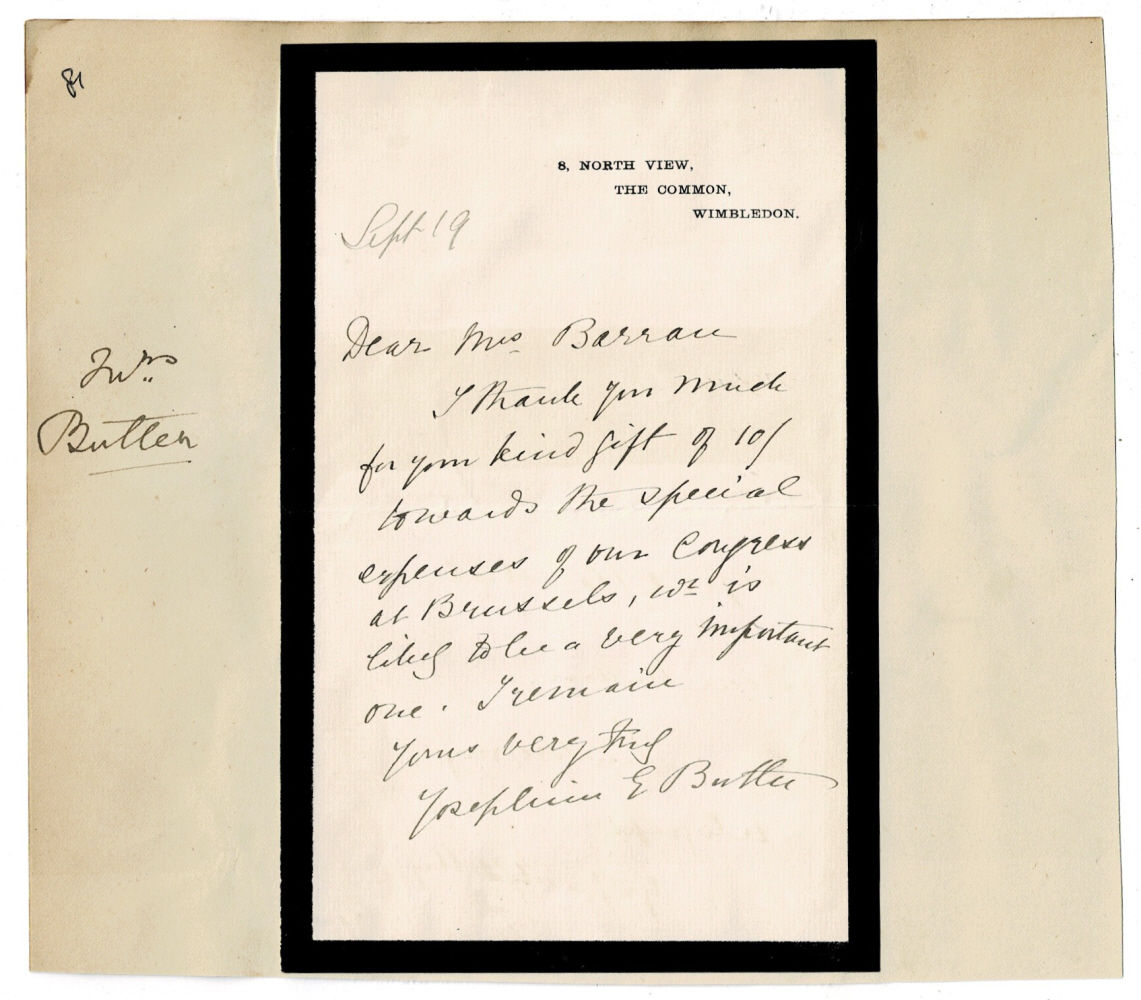 81
8, NORTH VIEW,
THE COMMON,
WIMBLEDON.
Sept 19
Dear Mrs Barran
I thank you much
for your kind gift of 10/
towards the special
expenses of our Congress
at Brussels, wh is
likely to be a very important
one. I remain
Yours very truly
Josephine E Butler
Mrs
Butler